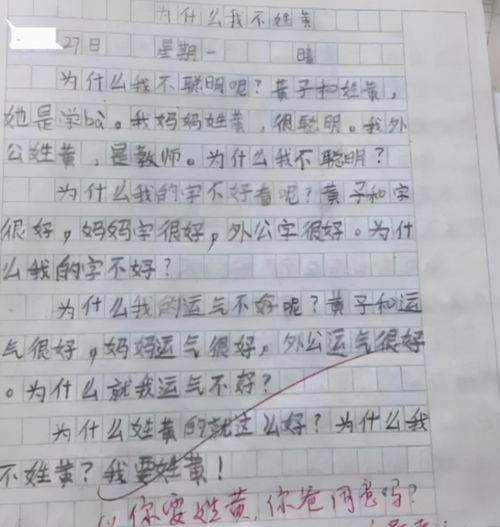 为什么我不姓黄
27日 星期一 晴
为什么我不聪明呢？黄子和姓黄，
她是学bà。我妈妈姓黄，很聪明。我外
公姓黄，是教师。为什么我不聪明？
为什么我的字不好看呢？黄子和字
很好，妈妈字很好，外公字很好。为什
么我的字不好？
为什么我的运气不好呢？黄子和运
气很好，妈妈运气很好，外公运气很好
。为什么就我运气不好？
为什么姓黄的就这么好？为什么我
不姓黄？我要姓黄！
你要姓黄，你爸同意吗？